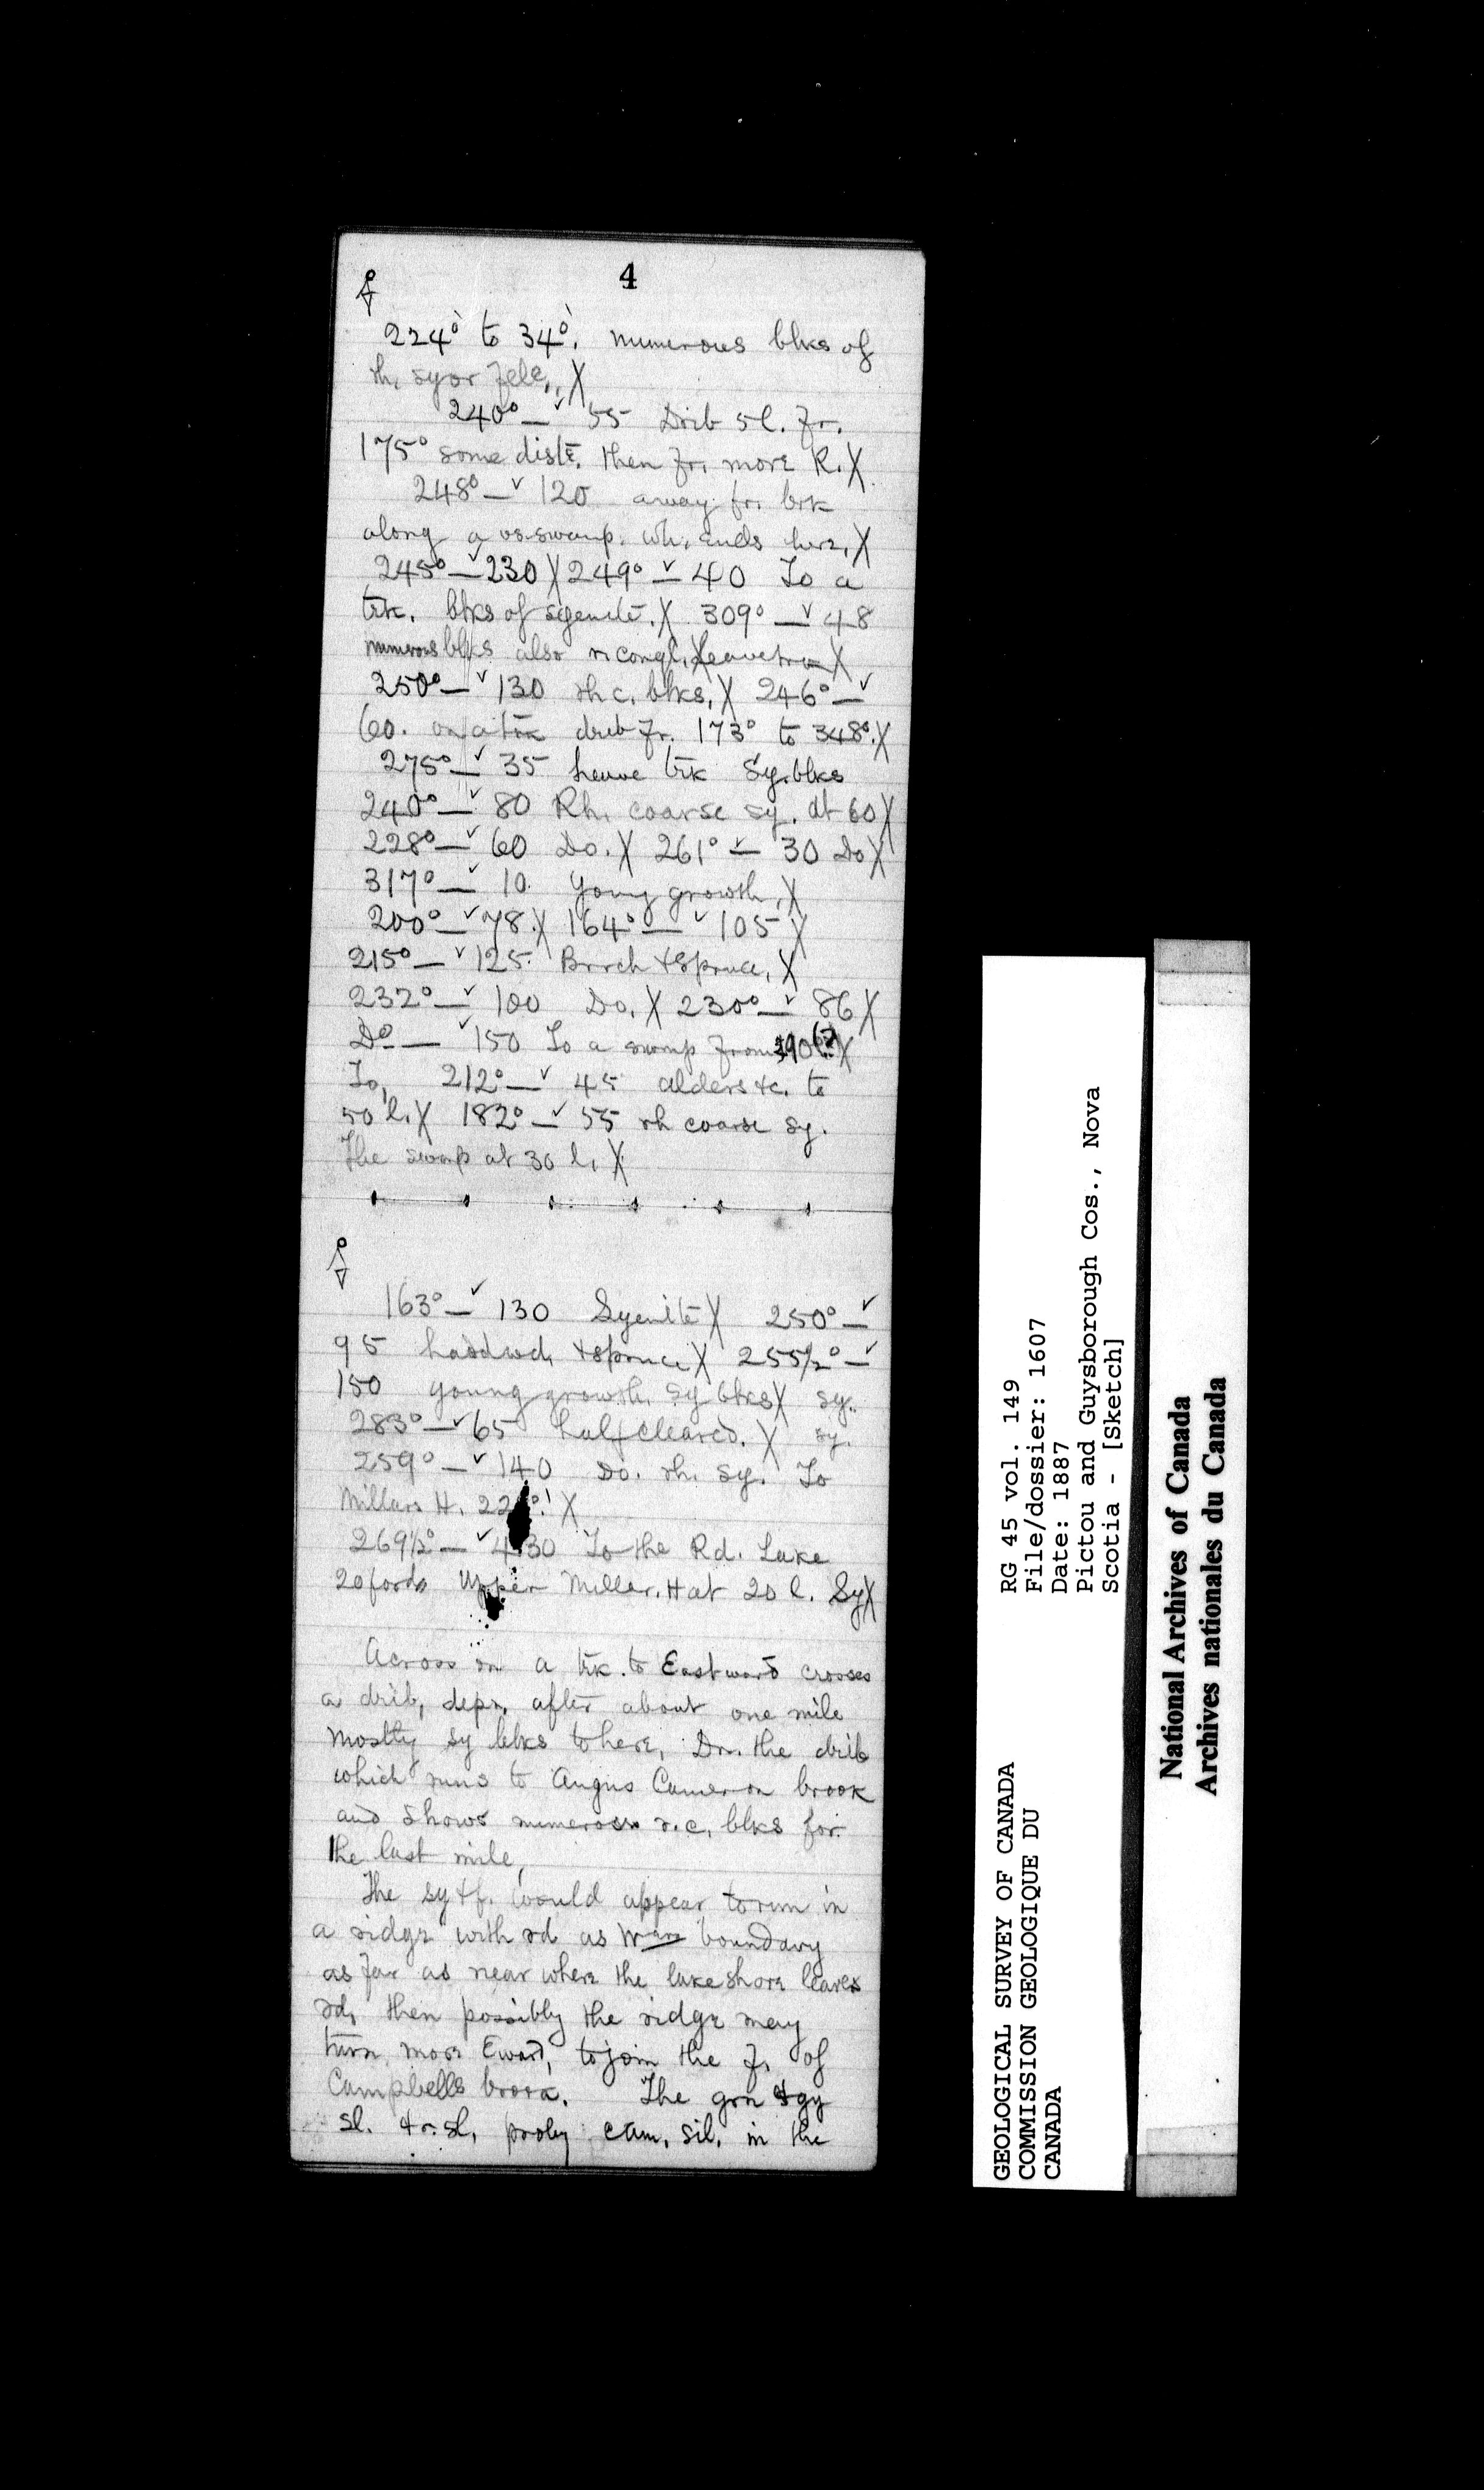 4
224° to 34°. numerous blks of
rh, sy or fels., X
240° — ✓ 55 Drib 5 l. fr.
175° some diste. then fr. more R. X
248° — ✓ 120 away fr. brk
along a swamp. wh. ends here, X
245° — ✓ 230 X 249° ✓ — 40 To a
trk. blks of syenite. X 309° — ✓ 48
numerous blks also r. congl. X leave trk X
250° — ✓ 130 rh c. blks, X 246° — ✓
60. on a trk drib fr. 173° to 348°. X
275° — ✓ 35 leave trk Sy. blks
240° — ✓ 80 Rh, coarse sy. at 60 X
228° — ✓ 60 Do. X 261° ✓ — 30 Do X
317° — ✓ 10. Young growth, X
200° — ✓ 78. X 164° — ✓ 105 X
215° — ✓ 125. Birch & Spruce, X
232° — ✓ 100 Do, X 230° — ✓ 86 X
Do — ✓ 150 To a swamp from X
To, 212° — ✓ 45 alders &c. to
50 l. X 182° — ✓ 55 rh coarse sy.
The swamp at 30 l, X
163° — ✓ 130 Syenite X 250° — ✓
95 hardwd, & spruce X 255½° — ✓
150 young growth, sy blks X sy.
283° — ✓ 65 half cleared. X sy.
259° — ✓ 140 Do. rh. sy. To
Millars H. X
269½° — ✓ 430 To the Rd. Lake
20 fords Upper Millar. H at 20 l. Sy X
Across on a trk. to Eastward crosses
a drib, depn. after about one mile
mostly sy blks to here, Dn. the drib
which runs to Angus Cameron brook
and shows numerous r.c. blks for
the last mile,
The sy & f. would appear to run in
a ridge with rd as Wern boundary
as far as near where the lake shore leaves
rd, then possibly the ridge may
turn more Eward, to join the f. of
Campbells brook. The grn & gy
sl. & r. sl, proby cam, sil, in the
GEOLOGICAL SURVEY OF CANADA
COMMISSION GEOLOGIQUE DU
CANADA
RG 45 vol. 149
File/dossier: 1607
Date: 1887
Pictou and Guysborough Cos., Nova
Scotia - [Sketch]
National Archives of Canada
Archives nationales du Canada